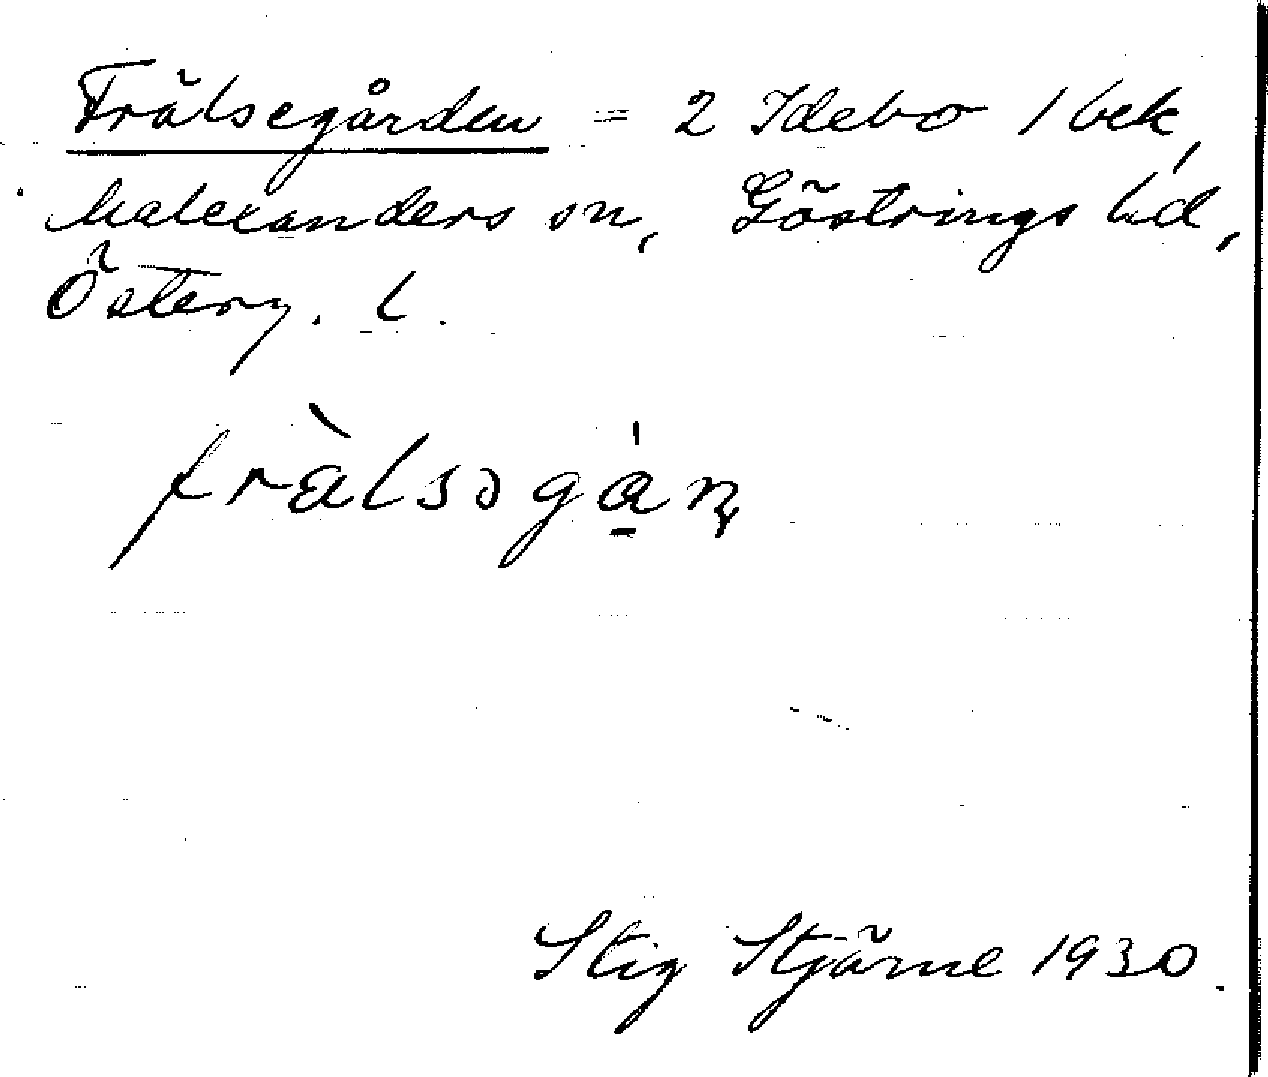 Frälsegården = 2 Idebo 1 bek,
Malexanders sn, Göstrings hd,
Österg. l.
fràlsəgá̱ɳ
Stig Stjärne 1930.